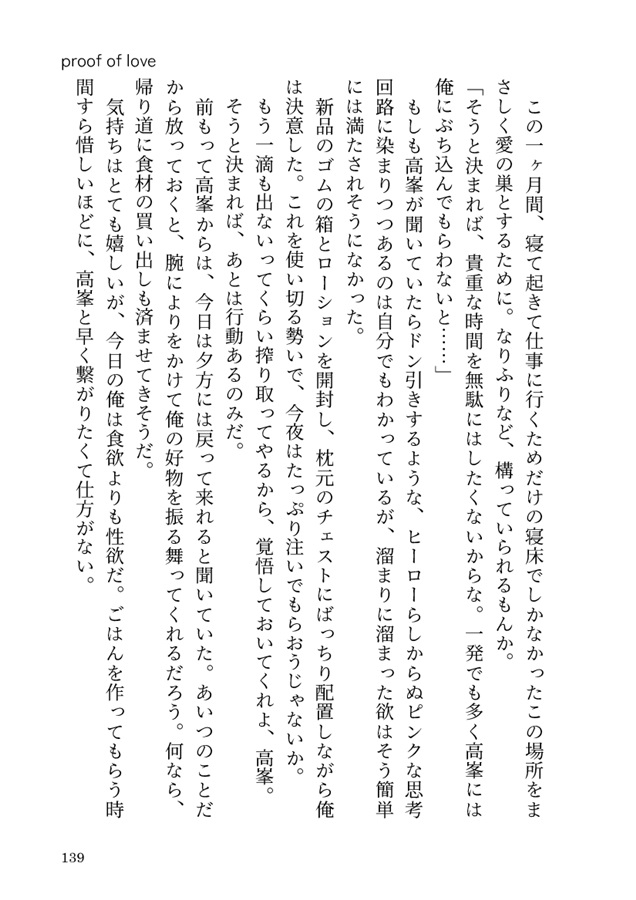 proof of love
この一ヶ月間、寝て起きて仕事に行くためだけの寝床でしかなかったこの場所をま
さしく愛の巣とするために。なりふりなど、構っていられるもんか。
「そうと決まれば、貴重な時間を無駄にはしたくないからな。一発でも多く高峯には
俺にぶち込んでもらわないと……」
もしも高峯が聞いていたらドン引きするような、ヒーローらしからぬピンクな思考
回路に染まりつつあるのは自分でもわかっているが、溜まりに溜まった欲はそう簡単
には満たされそうになかった。
新品のゴムの箱とローションを開封し、枕元のチェストにばっちり配置しながら俺
は決意した。これを使い切る勢いで、今夜はたっぷり注いでもらおうじゃないか。
もう一滴も出ないってくらい搾り取ってやるから、覚悟しておいてくれよ、高峯。
そうと決まれば、あとは行動あるのみだ。
前もって高峯からは、今日は夕方には戻って来れると聞いていた。あいつのことだ
から放っておくと、腕によりをかけて俺の好物を振る舞ってくれるだろう。何なら、
帰り道に食材の買い出しも済ませてきそうだ。
気持ちはとても嬉しいが、今日の俺は食欲よりも性欲だ。ごはんを作ってもらう時
間すら惜しいほどに、高峯と早く繋がりたくて仕方がない。
139